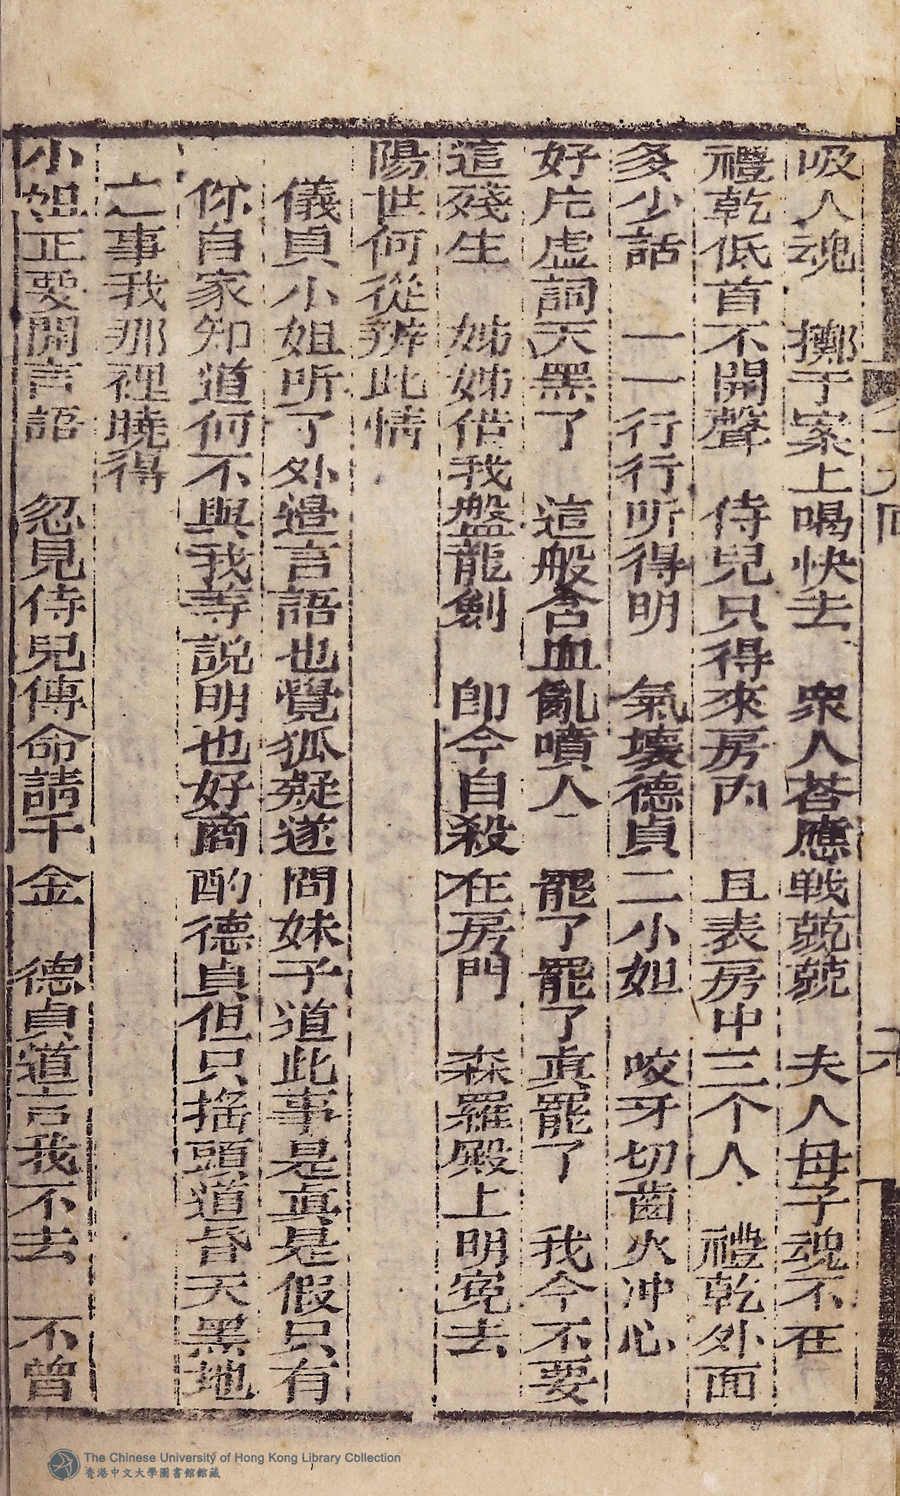 吸人魂　擲于案上喝快去　衆人荅應戦兢兢　夫人母子魂不在
禮乾低首不開聲　侍兒只得來房內　且表房中三个人　禮乾外面
多少話　一一行行所得明　氣壊德貞二小姐　咬牙切齒火冲心
好片虚詞天黒了　這般含血亂噴人　罷了罷了真罷了　我今不要
這殘生　姊姊借我盤龍劍　即今自殺在房門　森羅殿上明冤去
陽世何從辨此情
儀貞小姐所了外邉言語也覺狐疑遂問妹子道此事是真是假只有
你自家知道何不與我等説明也好商酌德貞但只揺頭道昏天黒地
之事我那裡曉得
小姐正要開言語　忽見侍兒傳命請千金　德貞道言我不去　不曾
The Chinese University of Hong Kong Library Collection
香港中文大學圖書館館藏